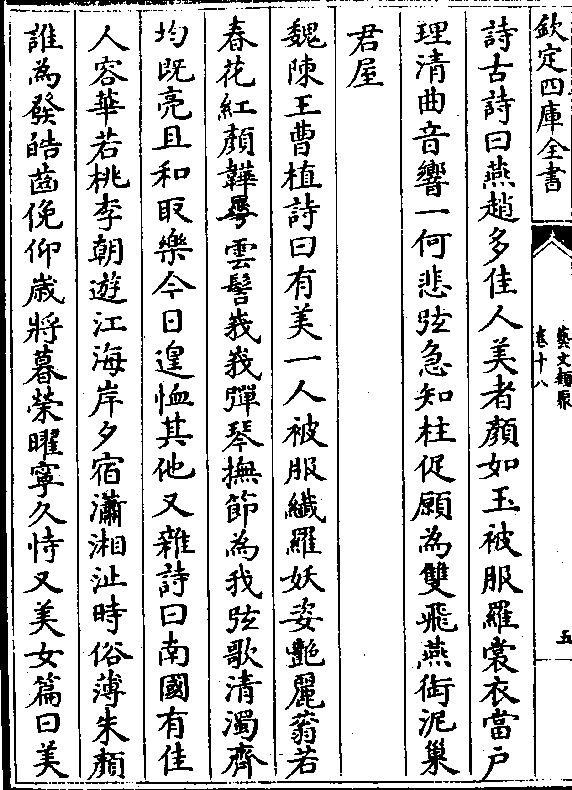 欽定四庫全書
藝文類聚
卷十八
五
詩古詩曰燕趙多佳人美者顏如玉被服羅裳衣當戶
理清曲音響一何悲弦急知柱促願為雙飛燕銜泥巢
君屋
魏陳王曹植詩曰有美一人被服纖羅妖姿艷麗蓊若
春花紅顏韡曅雲髻峩峩彈琴撫節為我弦歌清濁齊
均既亮且和取樂今日遑恤其他又雜詩曰南國有佳
人容華若桃李朝遊江海岸夕宿瀟湘沚時俗薄朱顏
誰為發皓齒俛仰歲將暮榮曜寧久恃又美女篇曰美